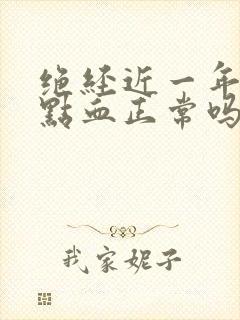 绝经近一年
點血正常吗
我家妮子